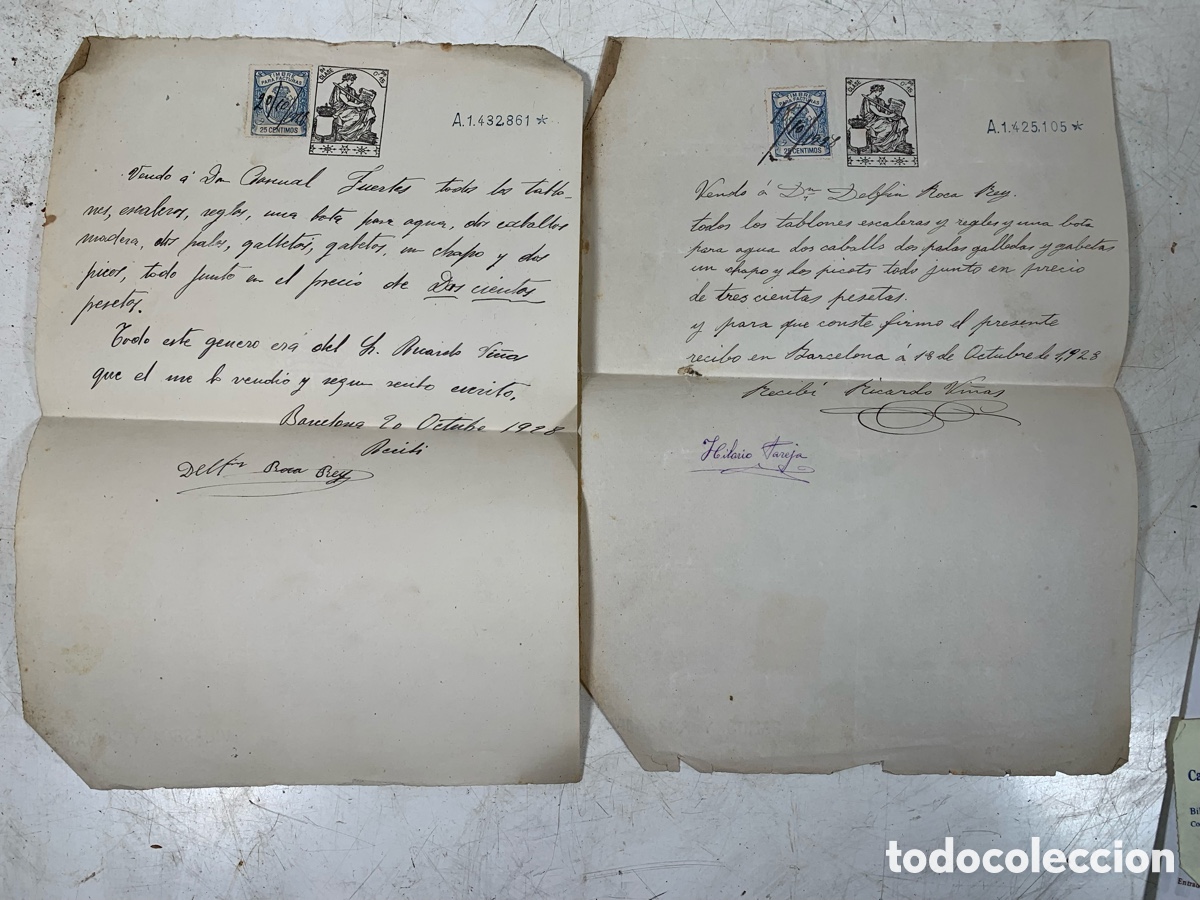 TIMBRE
PARA FACTURAS
25 CENTIMOS
A.1.432.861 *
Vendo á Dn Pascual Fuertes todos los tablo-
nes, escaleras, reglas, una bota para agua, dos caballos
madera, dos palas, galletas, gabetas, un chapo y dos
picos, todo junto en el precio de Dos cientas
pesetas.
Todo este genero era del Sr. Ricardo Viñas
que el me lo vendio y segun escrito.
Barcelona 20 Octubre 1928
Recibi
Delfin Roca Rey
TIMBRE
PARA FACTURAS
25 CENTIMOS
A.1.425.105 *
Vendo á Dn Delfin Roca Rey.
todos los tablones escaleras y regles y una bota
para agua dos caballo dos palas galledas y gabetas
un chapo y dos picots todo junto en precio
de tres cientas pesetas.
y para que conste firmo el presente
recibo en Barcelona á 18 de Octubre de 1,928
Recibí Ricardo Viñas
Hilario Tareja
Ca
Bi
Co
Entrad
todocoleccion